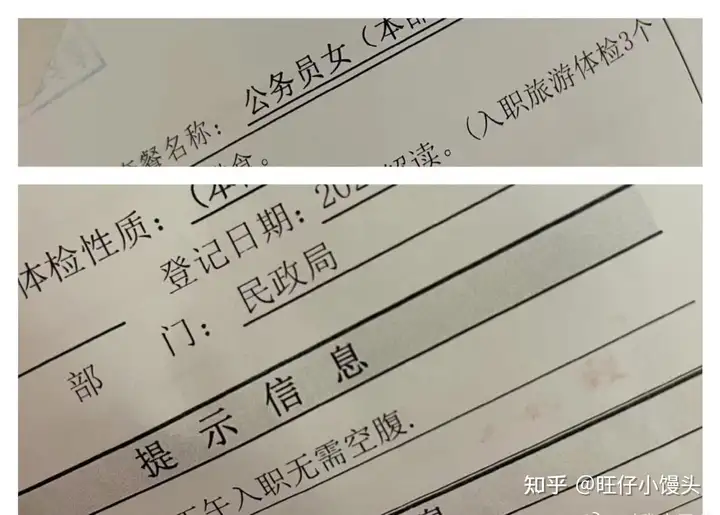 餐名称：公务员女（本部
检查。
解读。（入职旅游体检3个
体检性质：（本
登记日期：202
部 门：民政局
提示信息
下午入职无需空腹.
息
知乎 @旺仔小馒头